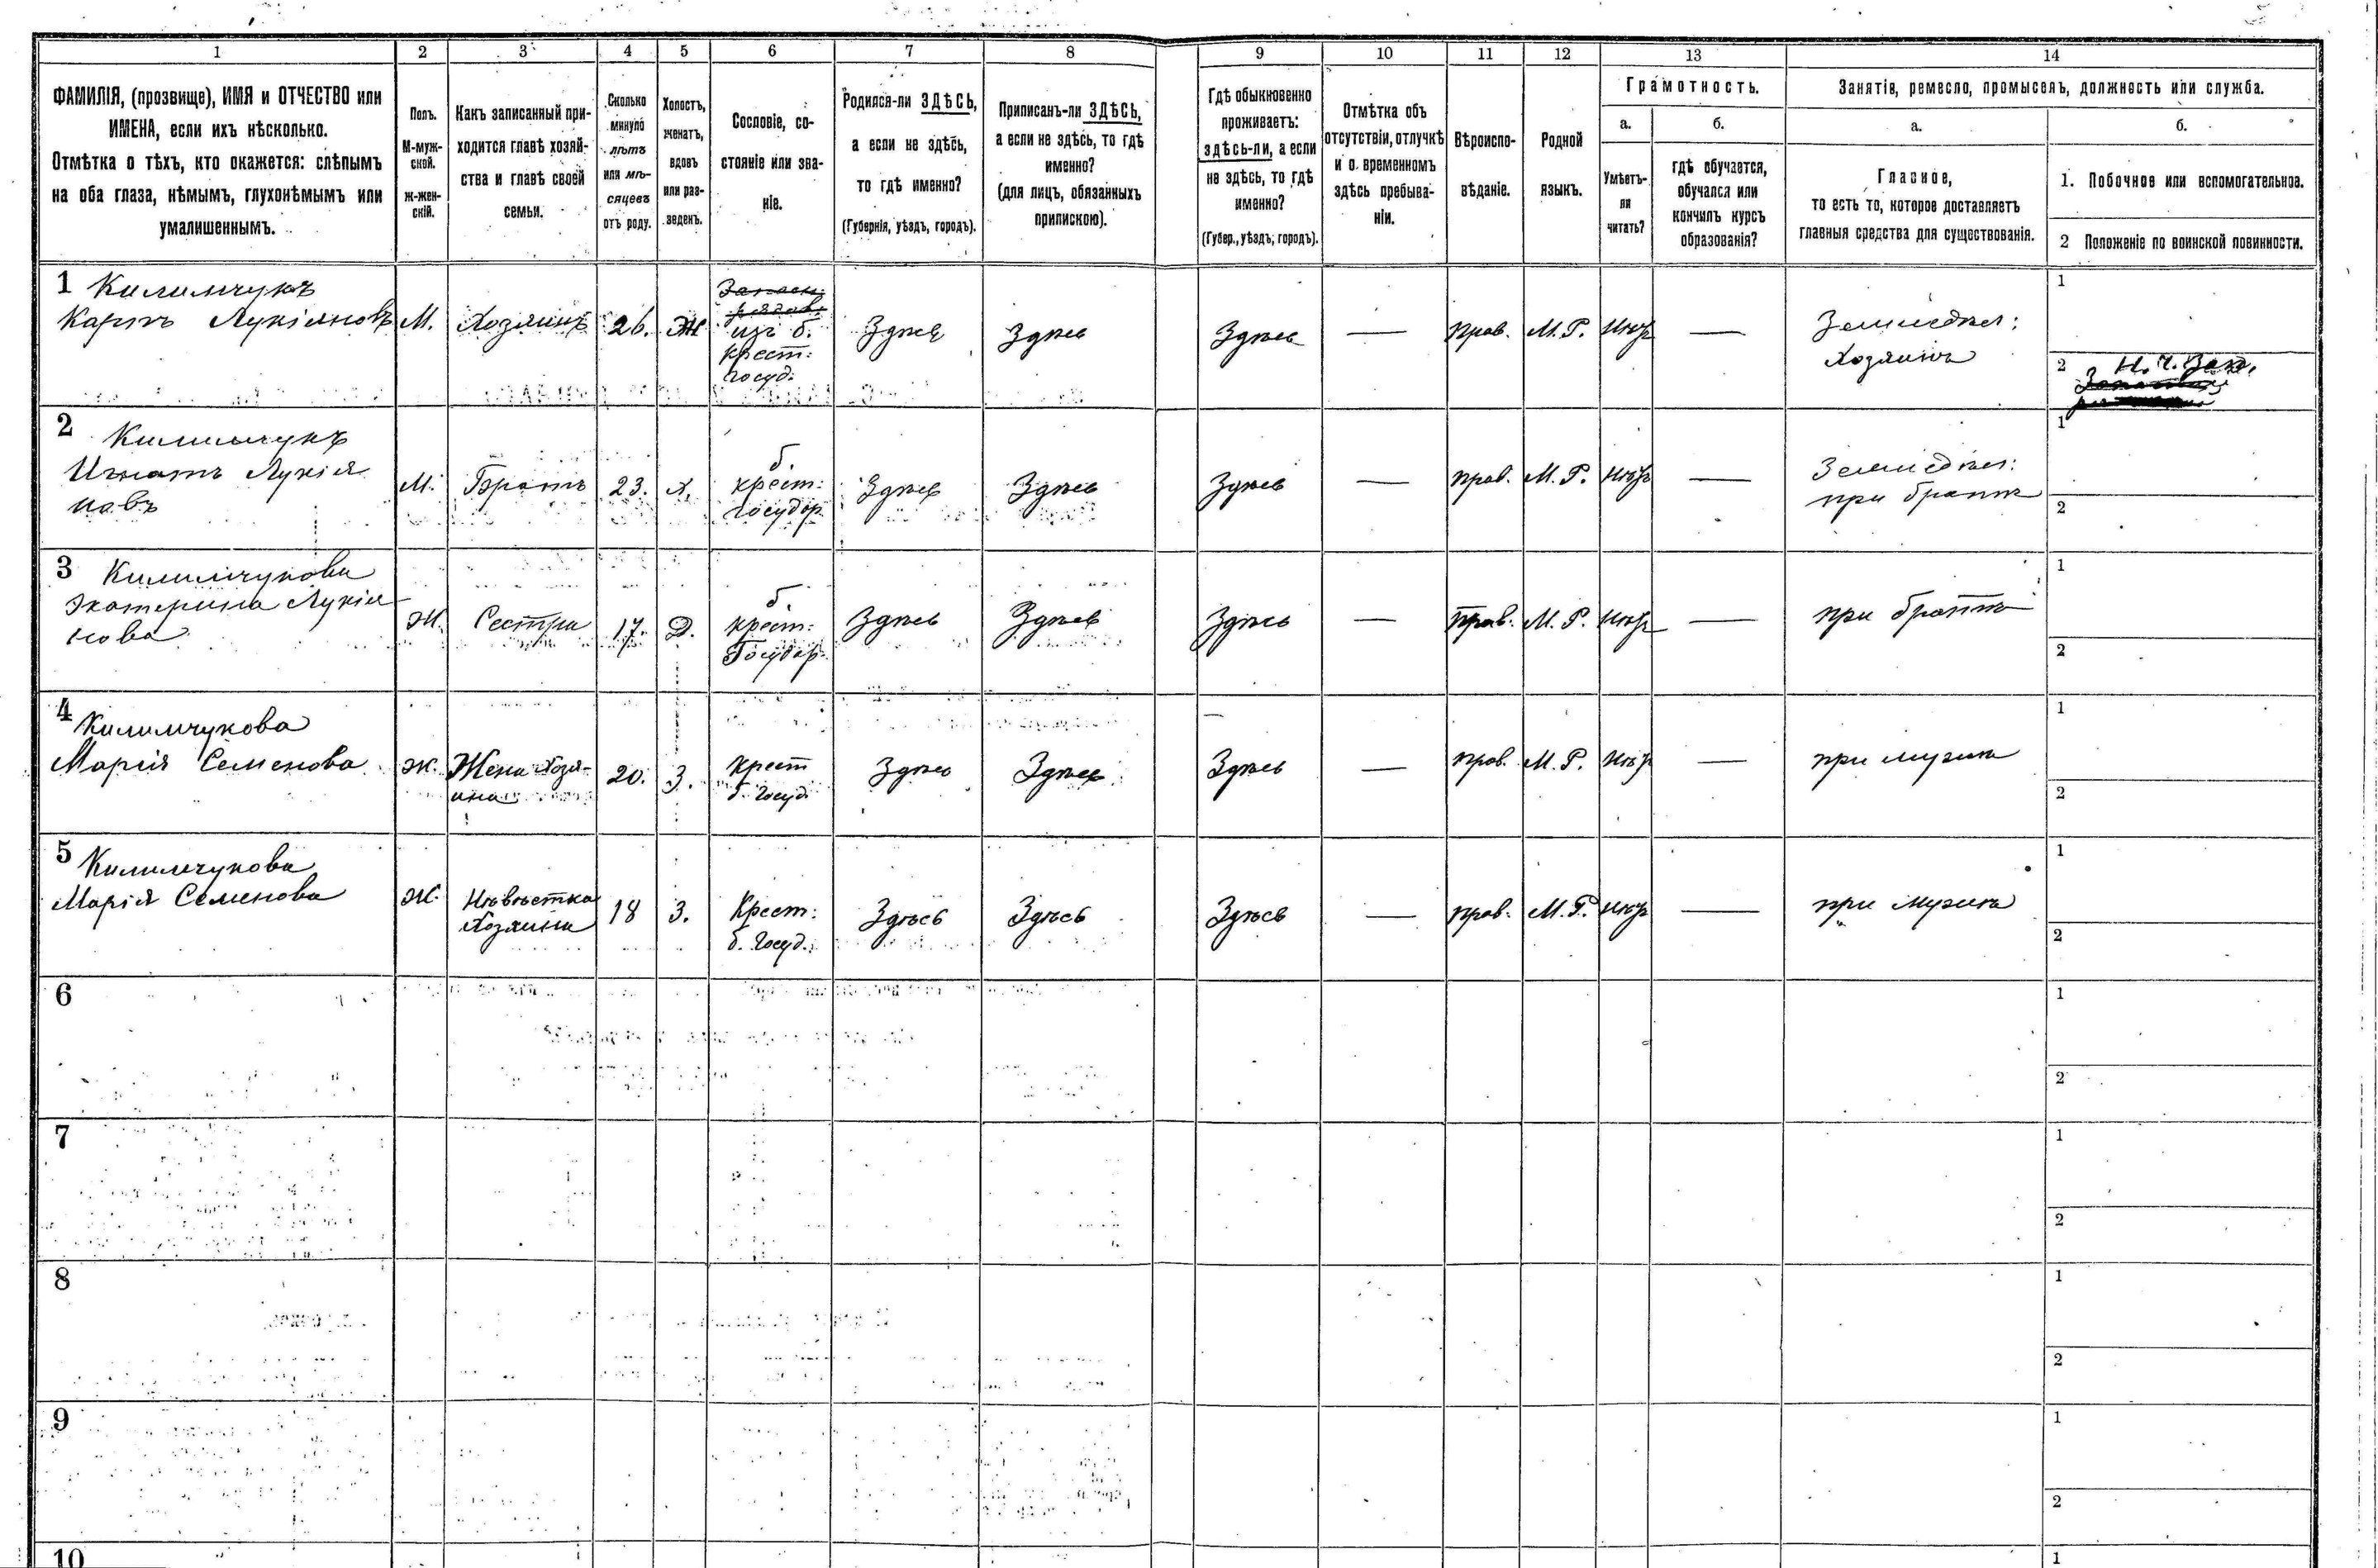 1 2 3 4 5 6 7 8 9 10 11 12 13 14
ФАМИЛІЯ, (прозвище), ИМЯ и ОТЧЕСТВО или
ИМЕНА, если ихъ нѣсколько.
Отмѣтка о тѣхъ, кто окажется: слѣпымъ
на оба глаза, нѣмымъ, глухонѣмымъ или
умалишеннымъ.
Полъ.
М-муж-
ской.
ж-жен-
скій.
Какъ записанный при-
ходится главѣ хозяй-
ства и главѣ своей
семьи.
Сколько
минуло
лѣтъ
или мѣ-
сяцевъ
отъ роду.
Холостъ,
женатъ,
вдовъ
или раз-
веденъ.
Сословіе, со-
стояніе или зва-
ніе.
Родился-ли ЗДѢСЬ,
а если не здѣсь,
то гдѣ именно?
(Губернія, уѣздъ, городъ).
Приписанъ-ли ЗДѢСЬ,
а если не здѣсь, то гдѣ
именно?
(для лицъ, обязанныхъ
припискою).
Гдѣ обыкновенно
проживаетъ:
здѣсь-ли, а если
не здѣсь, то гдѣ
именно?
(Губер., уѣздъ, городъ).
Отмѣтка объ
отсутствіи, отлучкѣ
и о временномъ
здѣсь пребыва-
ніи.
Вѣроиспо-
вѣданіе.
Родной
языкъ.
Грамотность.
а.
Умѣетъ-
ли
читать?
б.
гдѣ обучается,
обучался или
кончилъ курсъ
образованія?
Занятіе, ремесло, промыселъ, должность или служба.
а.
Главное,
то есть то, которое доставляетъ
главныя средства для существованія.
б.
1. Побочное или вспомогательное.
2 Положеніе по воинской повинности.
1 Килимчукъ
Карпъ Лукіяновъ
М.
Хозяинъ
26.
Ж
Запасн.
рядов.
изъ б.
крест:
госуд.
Здѣсь
Здѣсь
Здѣсь
—
прав.
М. Р.
Нѣтъ
—
Земледѣл:
Хозяинъ
1
2 Н. ч. Зап.
2 Килимчукъ
Игнатъ Лукія
новъ
М.
Братъ
23.
Х.
б.
крест:
государ
Здѣсь
Здѣсь
Здѣсь
—
прав.
М. Р.
Нѣтъ
—
Земледѣл:
при братѣ
1
2
3 Килимчукова
Екатерина Лукія
нова
Ж.
Сестра
17.
Д.
б.
крест:
Государ
Здѣсь
Здѣсь
Здѣсь
—
Прав.
М. Р.
Нѣтъ
—
при братѣ
1
2
4 Килимчукова
Марія Семенова
Ж.
Жена Хозя-
ина
20.
З.
Крест
б. Госуд.
Здѣсь
Здѣсь
Здѣсь
—
прав.
М. Р.
Нѣтъ
—
при мужѣ
1
2
5 Килимчукова
Марія Семенова
Ж.
Невѣстка
Хозяина
18
З.
Крест:
б. Госуд.
Здѣсь
Здѣсь
Здѣсь
—
прав.
М. Р.
Нѣтъ
—
при мужѣ
1
2
6
1
2
7
1
2
8
1
2
9
1
2
10
1